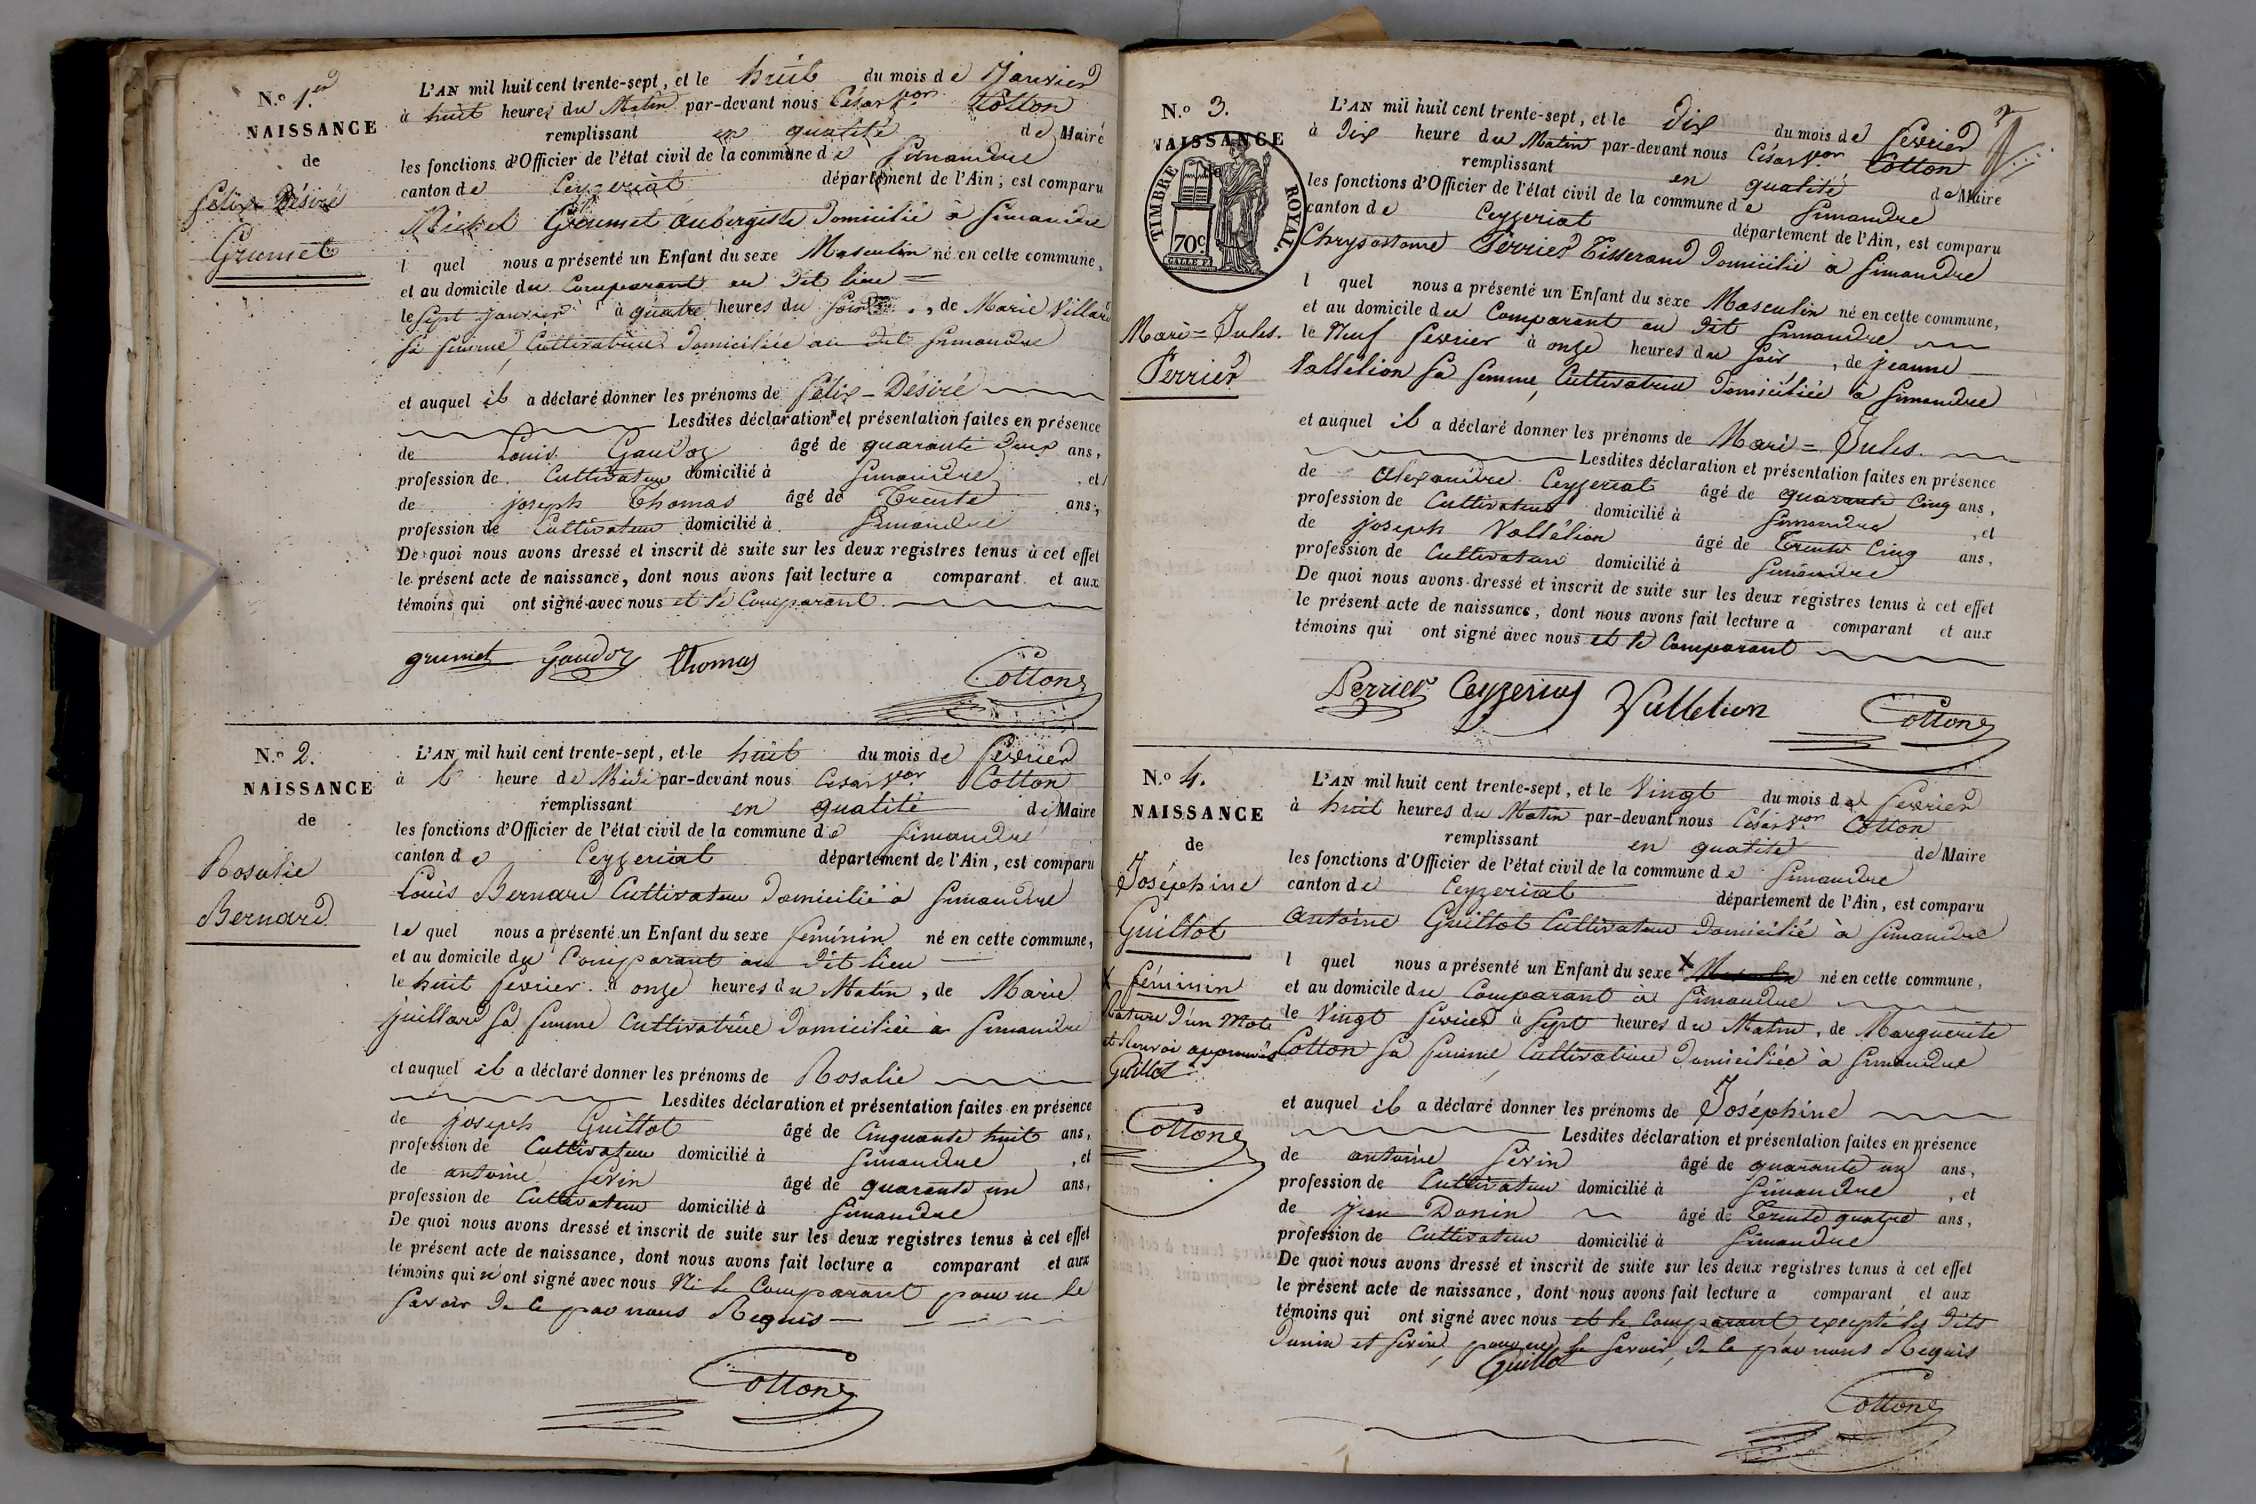 N.º 1.er
NAISSANCE
de
Félix Désiré
Grumet
L'AN mil huit cent trente-sept, et le huit du mois de Janvier
à huit heures du Matin par-devant nous César Vor Cotton
remplissant en qualité de Maire
les fonctions d'Officier de l'état civil de la commune de Simandre
canton de Ceyzeriat département de l'Ain, est comparu
Michel Grumet aubergiste domicilié à Simandre
l quel nous a présenté un Enfant du sexe Masculin né en cette commune,
et au domicile du Comparant au dit lieu
le Sept janvier à quatre heures du soir, de Marie Villard
sa femme, Cultivatrice domiciliée au dit Simandre
et auquel il a déclaré donner les prénoms de Félix-Désiré
Lesdites déclaration et présentation faites en présence
de Louis Gaudoz âgé de quarante deux ans,
profession de Cultivateur domicilié à Simandre, et
de joseph Thomas âgé de Trente ans,
profession de Cultivateur domicilié à Simandre
De quoi nous avons dressé et inscrit de suite sur les deux registres tenus à cet effet
le présent acte de naissance, dont nous avons fait lecture a comparant et aux
témoins qui ont signé avec nous et le Comparant.
grumet Gaudoz Thomas
Cotton
N.º 2.
NAISSANCE
de
Rosalie
Bernard
L'AN mil huit cent trente-sept, et le huit du mois de Fevrier
à heure de Midi par-devant nous César Vor Cotton
remplissant en qualité de Maire
les fonctions d'Officier de l'état civil de la commune de Simandre
canton de Ceyzeriat département de l'Ain, est comparu
Louis Bernard Cultivateur domicilié à Simandre
le quel nous a présenté un Enfant du sexe féminin né en cette commune,
et au domicile du Comparant au dit lieu
le huit fevrier à onze heures du Matin, de Marie
juillard sa femme Cultivatrice domiciliée à Simandre
et auquel il a déclaré donner les prénoms de Rosalie
Lesdites déclaration et présentation faites en présence
de joseph Guillot âgé de Cinquante huit ans,
profession de Cultivateur domicilié à Simandre, et
de antoine Sevin âgé de quarante un ans,
profession de Cultivateur domicilié à Simandre
De quoi nous avons dressé et inscrit de suite sur les deux registres tenus à cet effet
le présent acte de naissance, dont nous avons fait lecture a comparant et aux
témoins qui n'ont signé avec nous Ni le Comparant pour ne le
savoir de ce par nous Requis
Cotton
N.º 3.
NAISSANCE
de
TIMBRE ROYAL.
70c
Marie=Jules.
Perrier
L'AN mil huit cent trente-sept, et le Dix du mois de Fevrier
à Dix heure du Matin par-devant nous César Vor Cotton
remplissant en qualité de Maire
les fonctions d'Officier de l'état civil de la commune de Simandre
canton de Ceyzeriat département de l'Ain, est comparu
Chrysostome Perrier Tisserand domicilié à Simandre
l quel nous a présenté un Enfant du sexe Masculin né en cette commune,
et au domicile du Comparant au dit Simandre
le Neuf fevrier à onze heures du Soir, de jeanne
Vallélion sa femme, Cultivatrice domiciliée à Simandre
et auquel il a déclaré donner les prénoms de Marie=Jules.
Lesdites déclaration et présentation faites en présence
de Alexandre Ceyzeriat âgé de quarante Cinq ans,
profession de Cultivateur domicilié à Simandre, et
de joseph Vallélion âgé de Trente Cinq ans,
profession de Cultivateur domicilié à Simandre
De quoi nous avons dressé et inscrit de suite sur les deux registres tenus à cet effet
le présent acte de naissance, dont nous avons fait lecture a comparant et aux
témoins qui ont signé avec nous et le Comparant
Perrier Ceyzeriat Vallelion
Cotton
N.º 4.
NAISSANCE
de
Joséphine
Guillot
X féminin
Rature d'un Mot
et Renvoi approuvés
Guillot
Cotton
L'AN mil huit cent trente-sept, et le Vingt du mois de Fevrier
à huit heures du Matin par-devant nous César Vor Cotton
remplissant en qualité de Maire
les fonctions d'Officier de l'état civil de la commune de Simandre
canton de Ceyzeriat département de l'Ain, est comparu
Antoine Guillot Cultivateur domicilié à Simandre
l quel nous a présenté un Enfant du sexe X Masculin né en cette commune,
et au domicile du Comparant à Simandre
le Vingt fevrier à Sept heures du Matin, de Marguerite
Cotton sa femme, Cultivatrice domiciliée à Simandre
et auquel il a déclaré donner les prénoms de Joséphine
Lesdites déclaration et présentation faites en présence
de antoine Sevin âgé de quarante un ans,
profession de Cultivateur domicilié à Simandre, et
de jean Donin âgé de Trente quatre ans,
profession de Cultivateur domicilié à Simandre
De quoi nous avons dressé et inscrit de suite sur les deux registres tenus à cet effet
le présent acte de naissance, dont nous avons fait lecture a comparant et aux
témoins qui ont signé avec nous et le Comparant excepté les dits
Donin et Sevin, pour ne le savoir, de ce par nous Requis
Guillot
Cotton